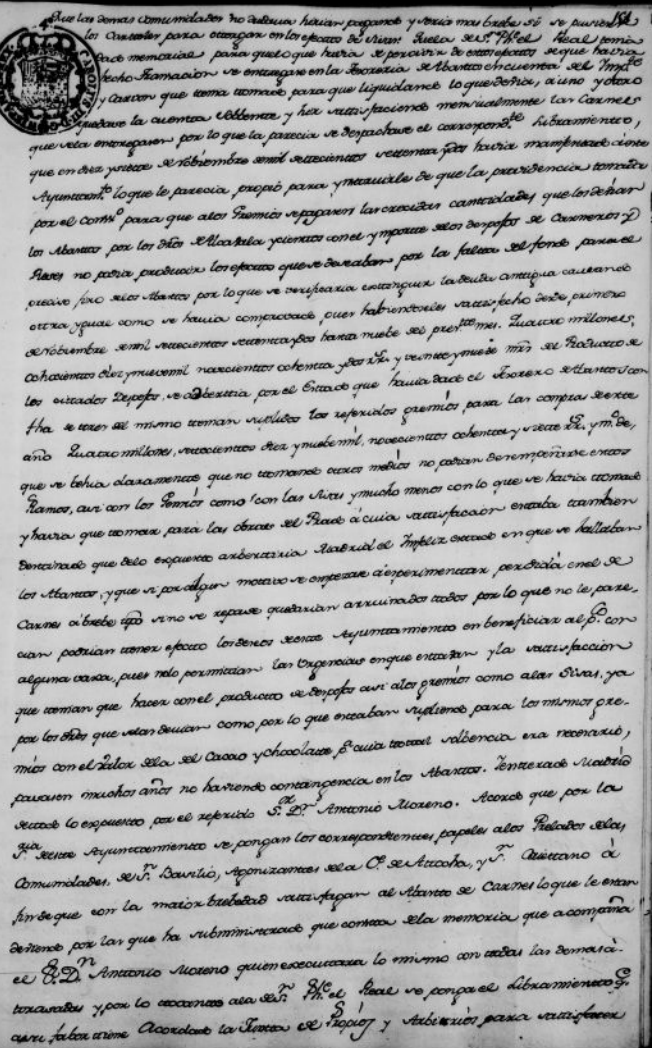 151
Que las demas Comunidades no dudava harian pagando y seria mas brebe si se pusiesen
los Carteles para otorgar en los efectos de Sisas. Que la de Sn. Phe. el Real tenia
dado memorial para que lo que havia de percivir de estos efectos de que havia
hecho formacion se entregase en la Tesoreria de Abastos en cuenta del Impte.
y Carbon que tenia tomado para que liquidando lo que devia, a uno y otro
quedase la cuenta solbente y her sattisfaciendo mensualmente las Carnes
que se la entregasen por lo que la parecia se despachase el correspondte. Libramiento,
que en diez y siette de Nobiembre de mil settecientos settenta y dos havia manifestado a este
Ayuntamto. lo que le parecia propio para y de que la providencia tomada
por el Consº. para que a los Gremios se pagasen las crecidas cantidades que los devian
los Abastos por los dros de Alcavala y cientos con el ymporte de los despojos de Carneros y
Reses no podia producir los efectos que se deseaban por la falta del fondo para el
preciso giro de los Abastos por lo que se verificaria extinguir la deuda antigua causando
ottra ygual como se havia comprovado, pues habiendoseles sattisfecho desde primero
de Nobiembre de mil settecientos settenta y dos hasta nuebe del presste. mes. Quattro millones,
ochocientos diez y nuebe mil novecientos ochenta y dos rs. y veinte y nuebe mrs. del Producto de
los cittados Despojos, se adbertia por el Estado que havia dado el Tesorero de Abastos con
fha de tres del mismo tenian suplidos los referidos gremios para las compras de este
año Quatro millones, settecientos diez y nuebe mil, novecientos ochenta y siette rs. y ms. de,
que se behia claramente que no tomando otros medios no podian desempeñarse estos
Ramos, asi con los Gremios como con las Sisas y mucho menos con lo que se havia tomado
y havia que tomar para las obras del Prado a cuia sattisfaccion estaba tambien
destinado que de lo expuesto adbertiria Madrid el Infeliz estado en que se hallaban
los Abastos, y que si por algun motivo se empezase a experimentar perdida en el de
Carnes a brebe tpo sino se repara quedarian arruinados todos por lo que no le pare-
cian podrian tener efecto los deseos de este Ayuntamiento en beneficiar al Pco. con
alguna vaxa, pues no lo permittian las Urgencias en que estaban y la sattisfaccion
que tenian que hacer con el producto de despojos asi a los gremios como a las Sisas, ya
por los dros que se las devian como por lo que estaban supliendo para los mismos gre-
mios con el Valor de la del Cacao y chocolate pa. cuia total solbencia era necesario,
pasasen muchos años no haviendo contingencia en los Abastos. Y entterado Madrid
de todo lo expuesto por el referido Sor. Dn. Antonio Moreno. Acordo que por la
Sria. de este Ayuntamiento se pongan los correspondientes papeles a los Prelados de las
Comunidades, de Sn. Basilio, Agonizantes de la Ce. de Atocha, y Sn. Caiettano a
fin de que con la maior brebedad sattisfagan al Abasto de Carnes lo que le estan
deviendo por las que ha subministrado que consta de la memoria que acompaña
el Sr. Dn. Antonio Moreno quien executara lo mismo con todas las demas a-
trasadas y por lo tocante a la de Sn. Phe. el Real se ponga el Libramiento qe.
a su fabor tiene Acordado la Junta de Propios y Arbitrios para sattisfacer